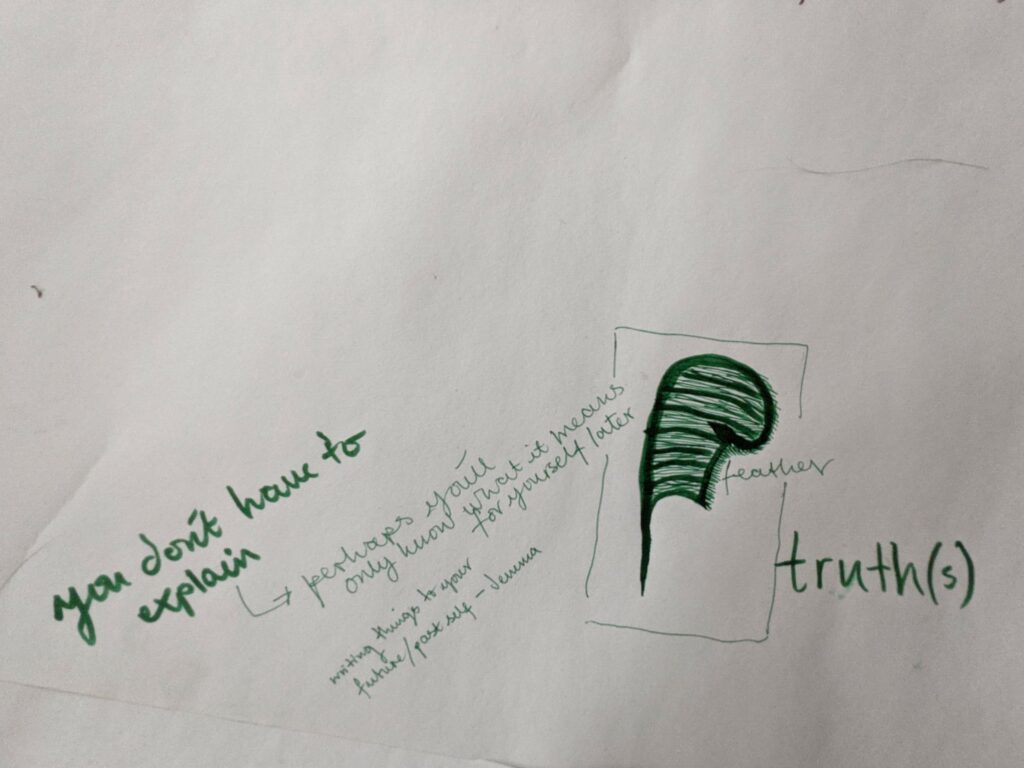 you don't have to
explain
perhaps you'll
only know what it means
for yourself later
writing things to your
future/past self - Jemma
feather
truth(s)